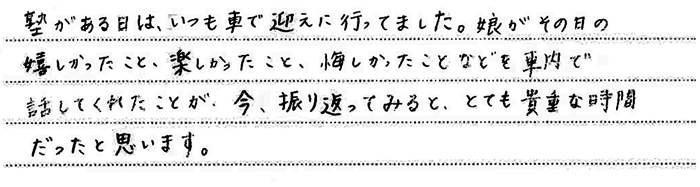 塾がある日は、いつも車で迎えに行ってました。娘がその日の
嬉しかったこと、楽しかったこと、悔しかったことなどを車内で
話してくれたことが、今、振り返ってみると、とても貴重な時間
だったと思います。